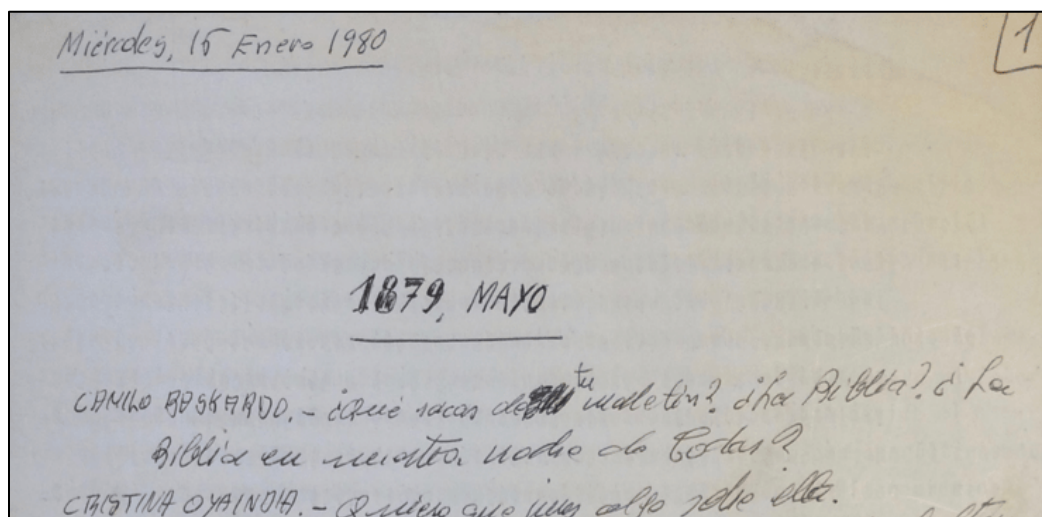 Miércoles, 16 Enero 1980
1
1879, MAYO
CAMILO BASKARDO. - ¿Qué sacas de tu maletín? ¿La Biblia? ¿La
Biblia en nuestra noche de bodas?
CRISTINA OYAINDIA. - Quiero que jures algo sobre ella.